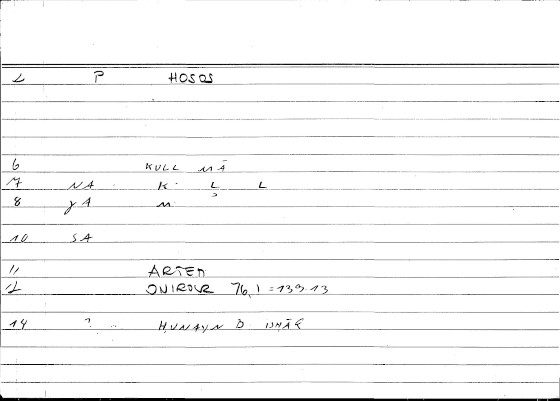 2 P HOSOS
6 KULL MĀ
7 NA K. L L
8 YA M
10 SA
11 ARTEM
12 ONIROCR 76,1 = 139.13
14 ? .. ḤUNAYN B ISḤĀQ